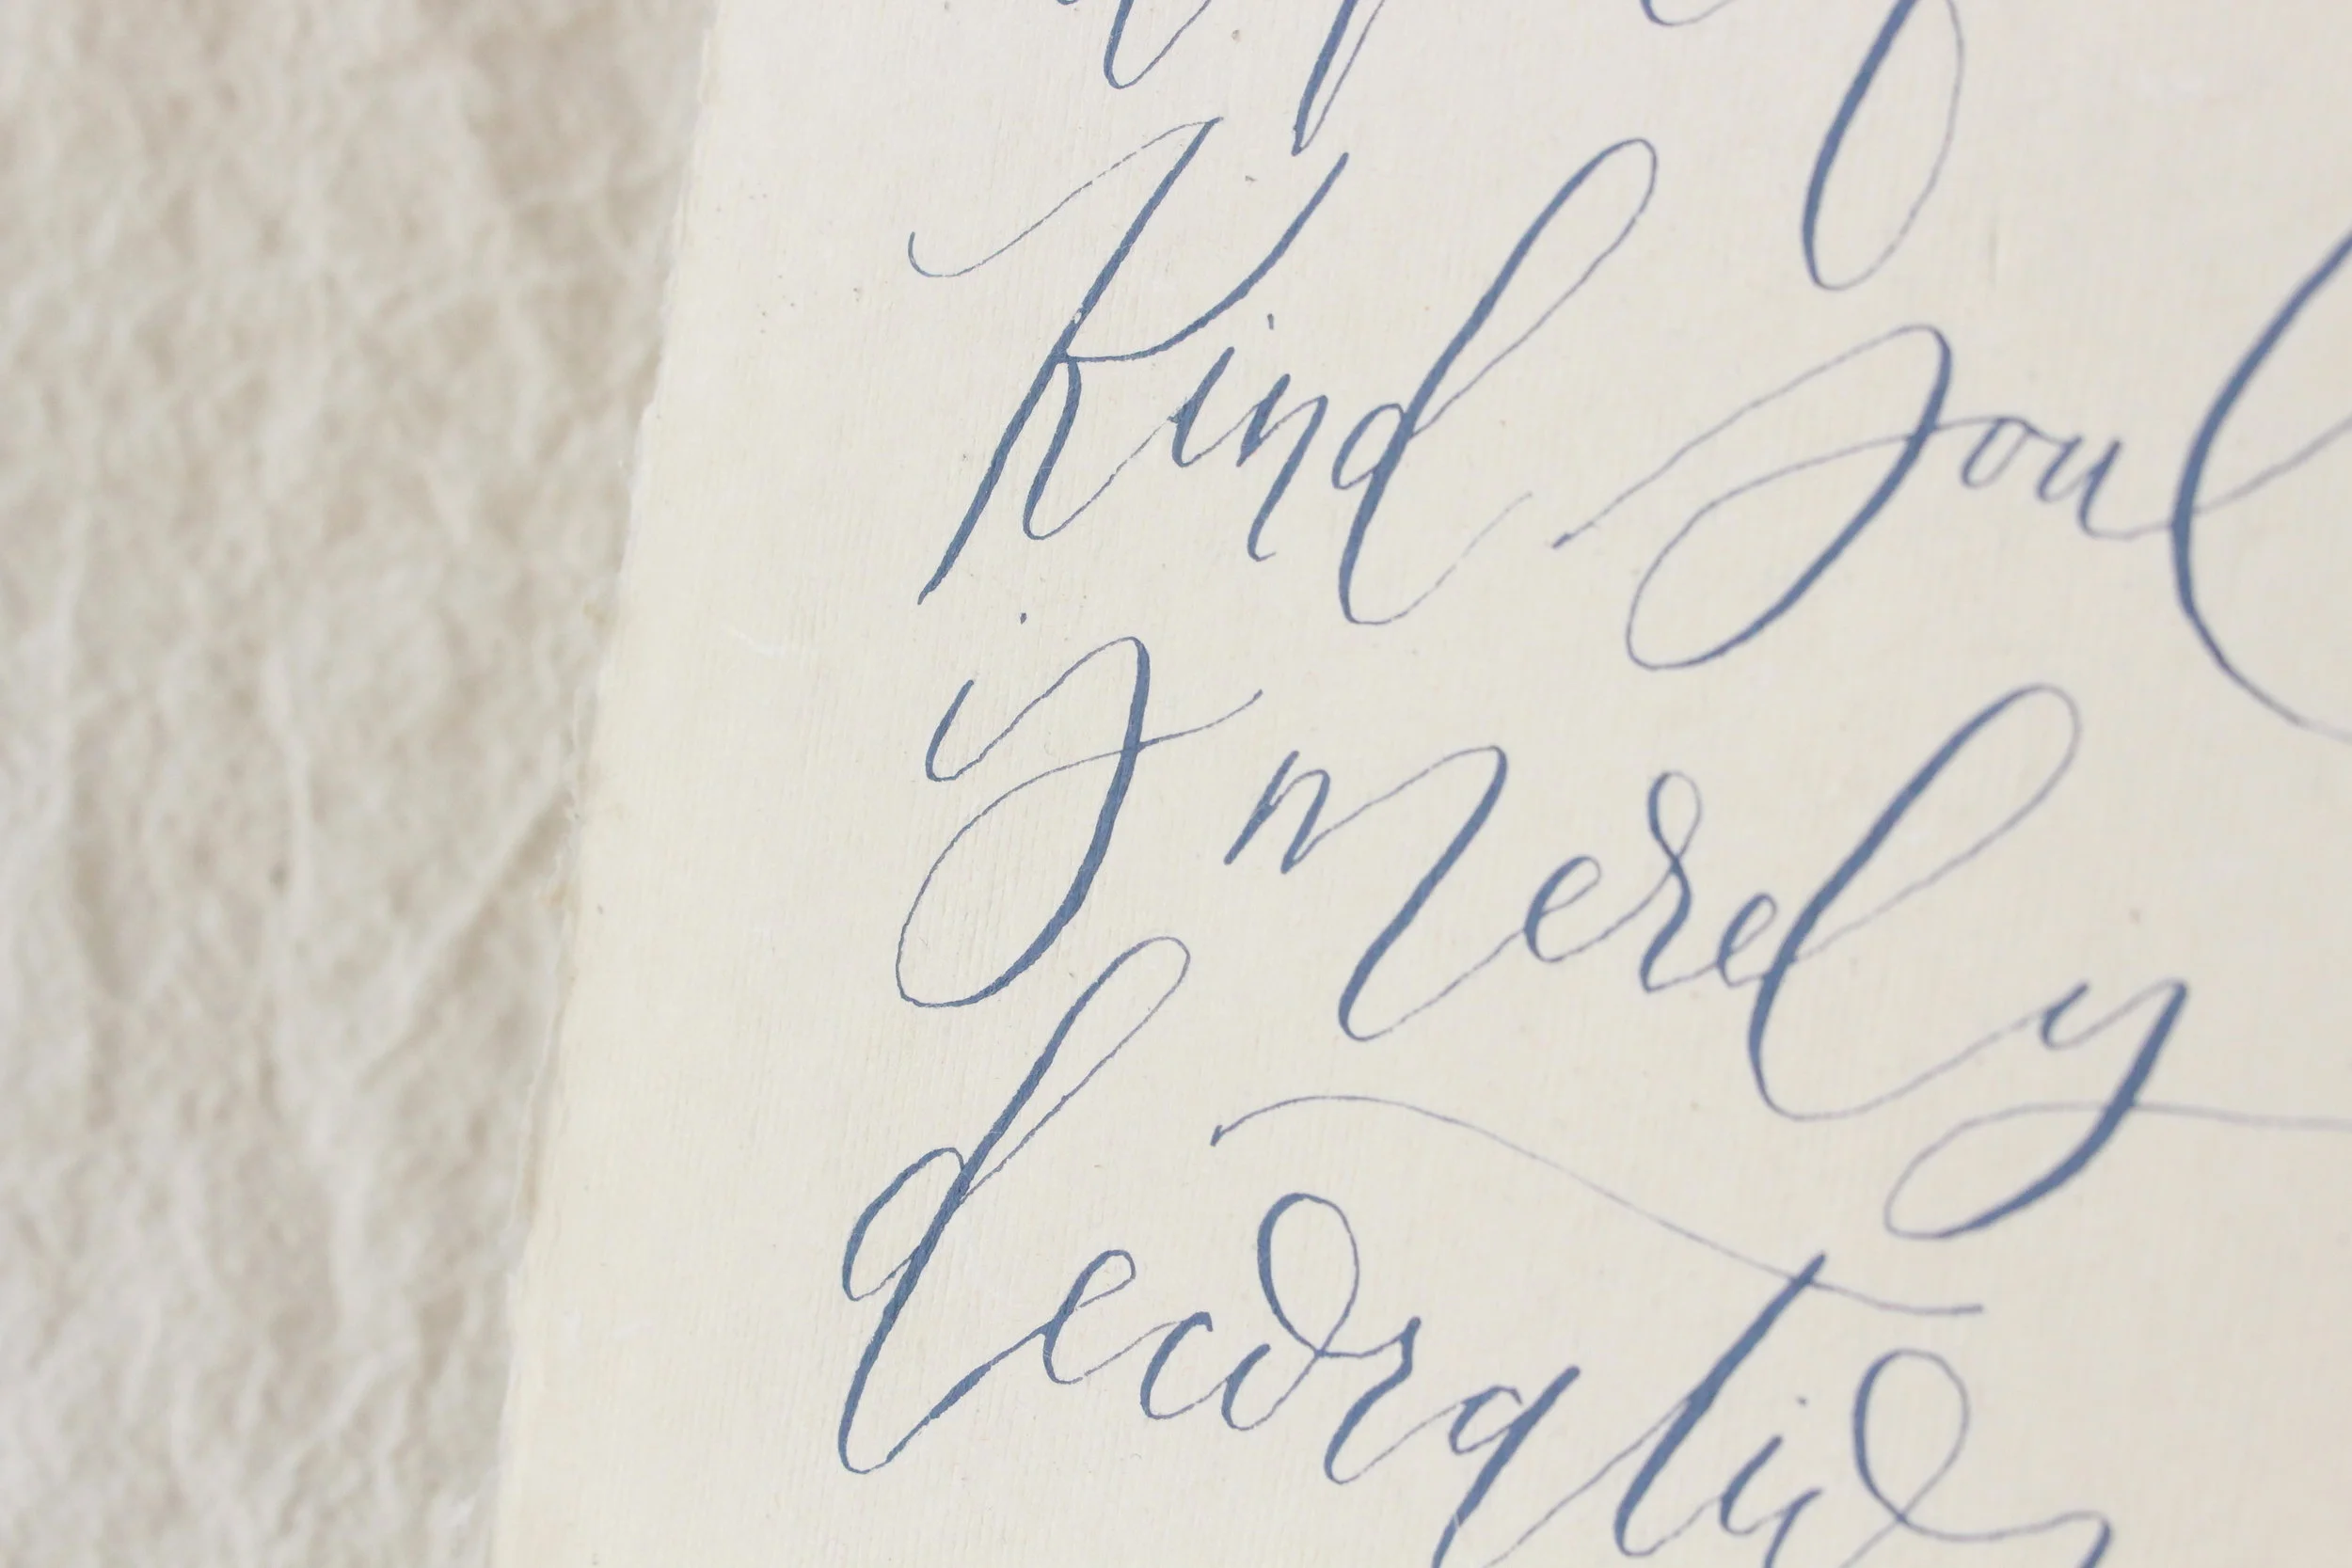 Kind soul
is merely
decoration